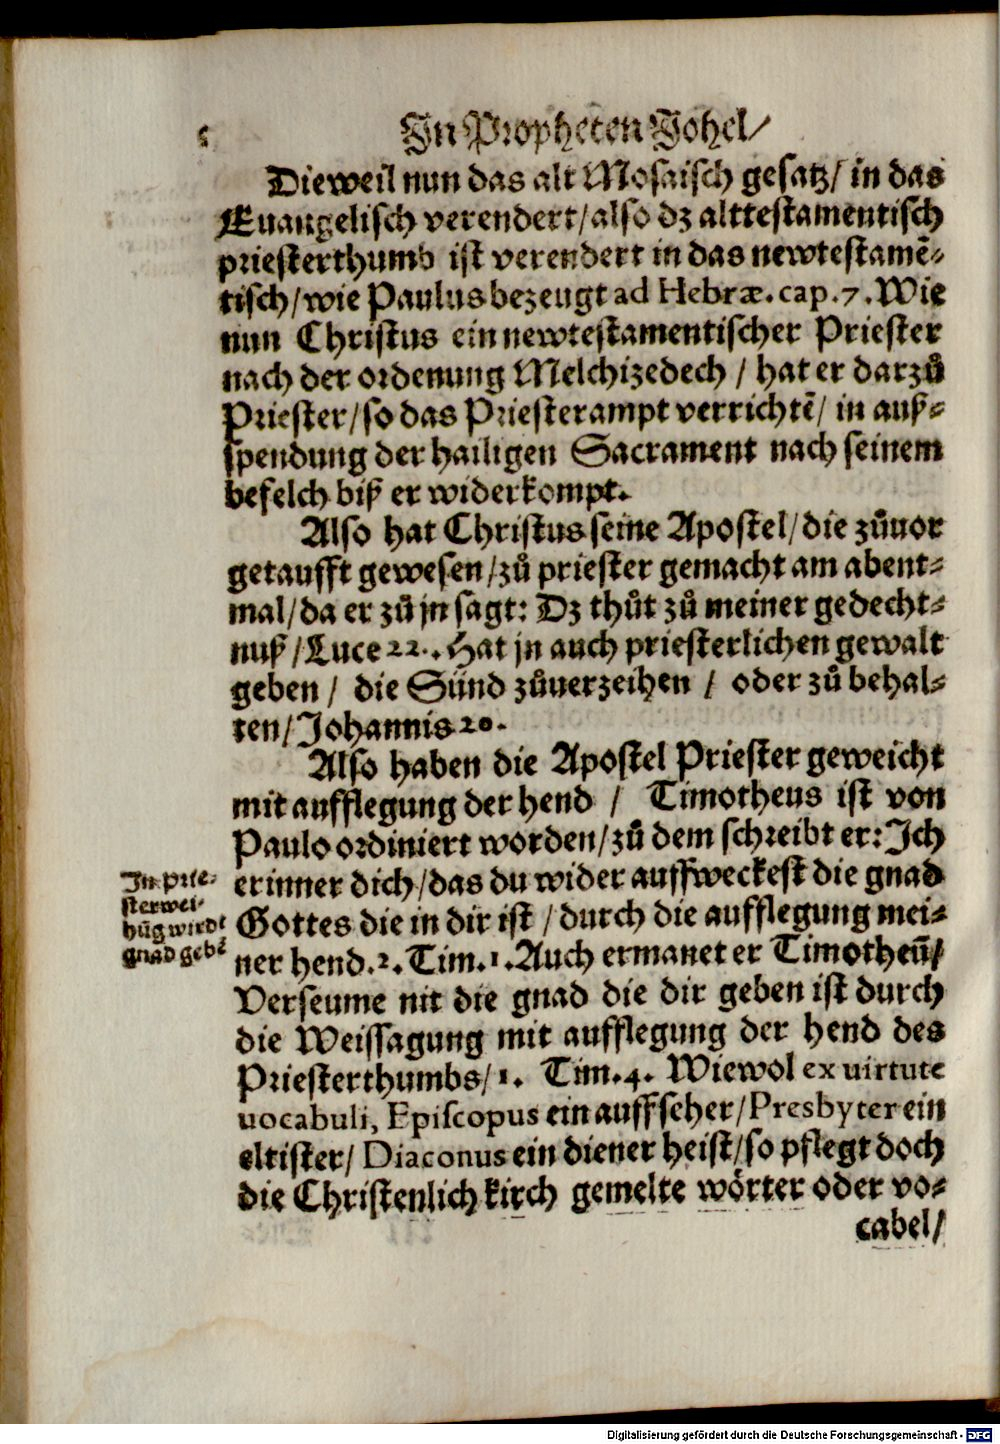 In Propheten Johel/
Dieweil nun das alt Mosaisch gesatz/ in das
Euangelisch verendert/ also dz alttestamentisch
priesterthumb ist verendert in das newtestamẽ-
tisch/ wie Paulus bezeugt ad Hebræ. cap. 7. Wie
nun Christus ein newtestamentischer Priester
nach der ordenung Melchizedech / hat er darzů
Priester/ so das Priesterampt verrichtẽ/ in auß-
spendung der hailigen Sacrament nach seinem
befelch biß er widerkompt.
Also hat Christus seine Apostel/ die zůuor
getaufft gewesen/ zů priester gemacht am abent-
mal/ da er zů jn sagt: Dz thůt zů meiner gedecht-
nuß/ Luce 22. Hat jn auch priesterlichen gewalt
geben/ die Sünd zůuerzeihen / oder zů behal-
ten/ Johannis 20.
Also haben die Apostel Priester geweicht
mit aufflegung der hend / Timotheus ist von
Paulo ordiniert worden/ zů dem schreibt er: Ich
erinner dich/ das du wider auffweckest die gnad
Gottes die in dir ist / durch die aufflegung mei-
ner hend. 2. Tim. 1. Auch ermanet er Timotheũ/
Verseume nit die gnad die dir geben ist durch
die Weissagung mit aufflegung der hend des
Priesterthumbs/ 1. Tim. 4. Wiewol ex uirtute
uocabuli, Episcopus ein auffscher/ Presbyter ein
eltister/ Diaconus ein diener heist/ so pflegt doch
die Christenlich kirch gemelte wörter oder vo-
cabel/
In prie-
sterwei-
hũg wirdt
gnad gebẽ
Digitalisierung gefördert durch die Deutsche Forschungsgemeinschaft - DFG